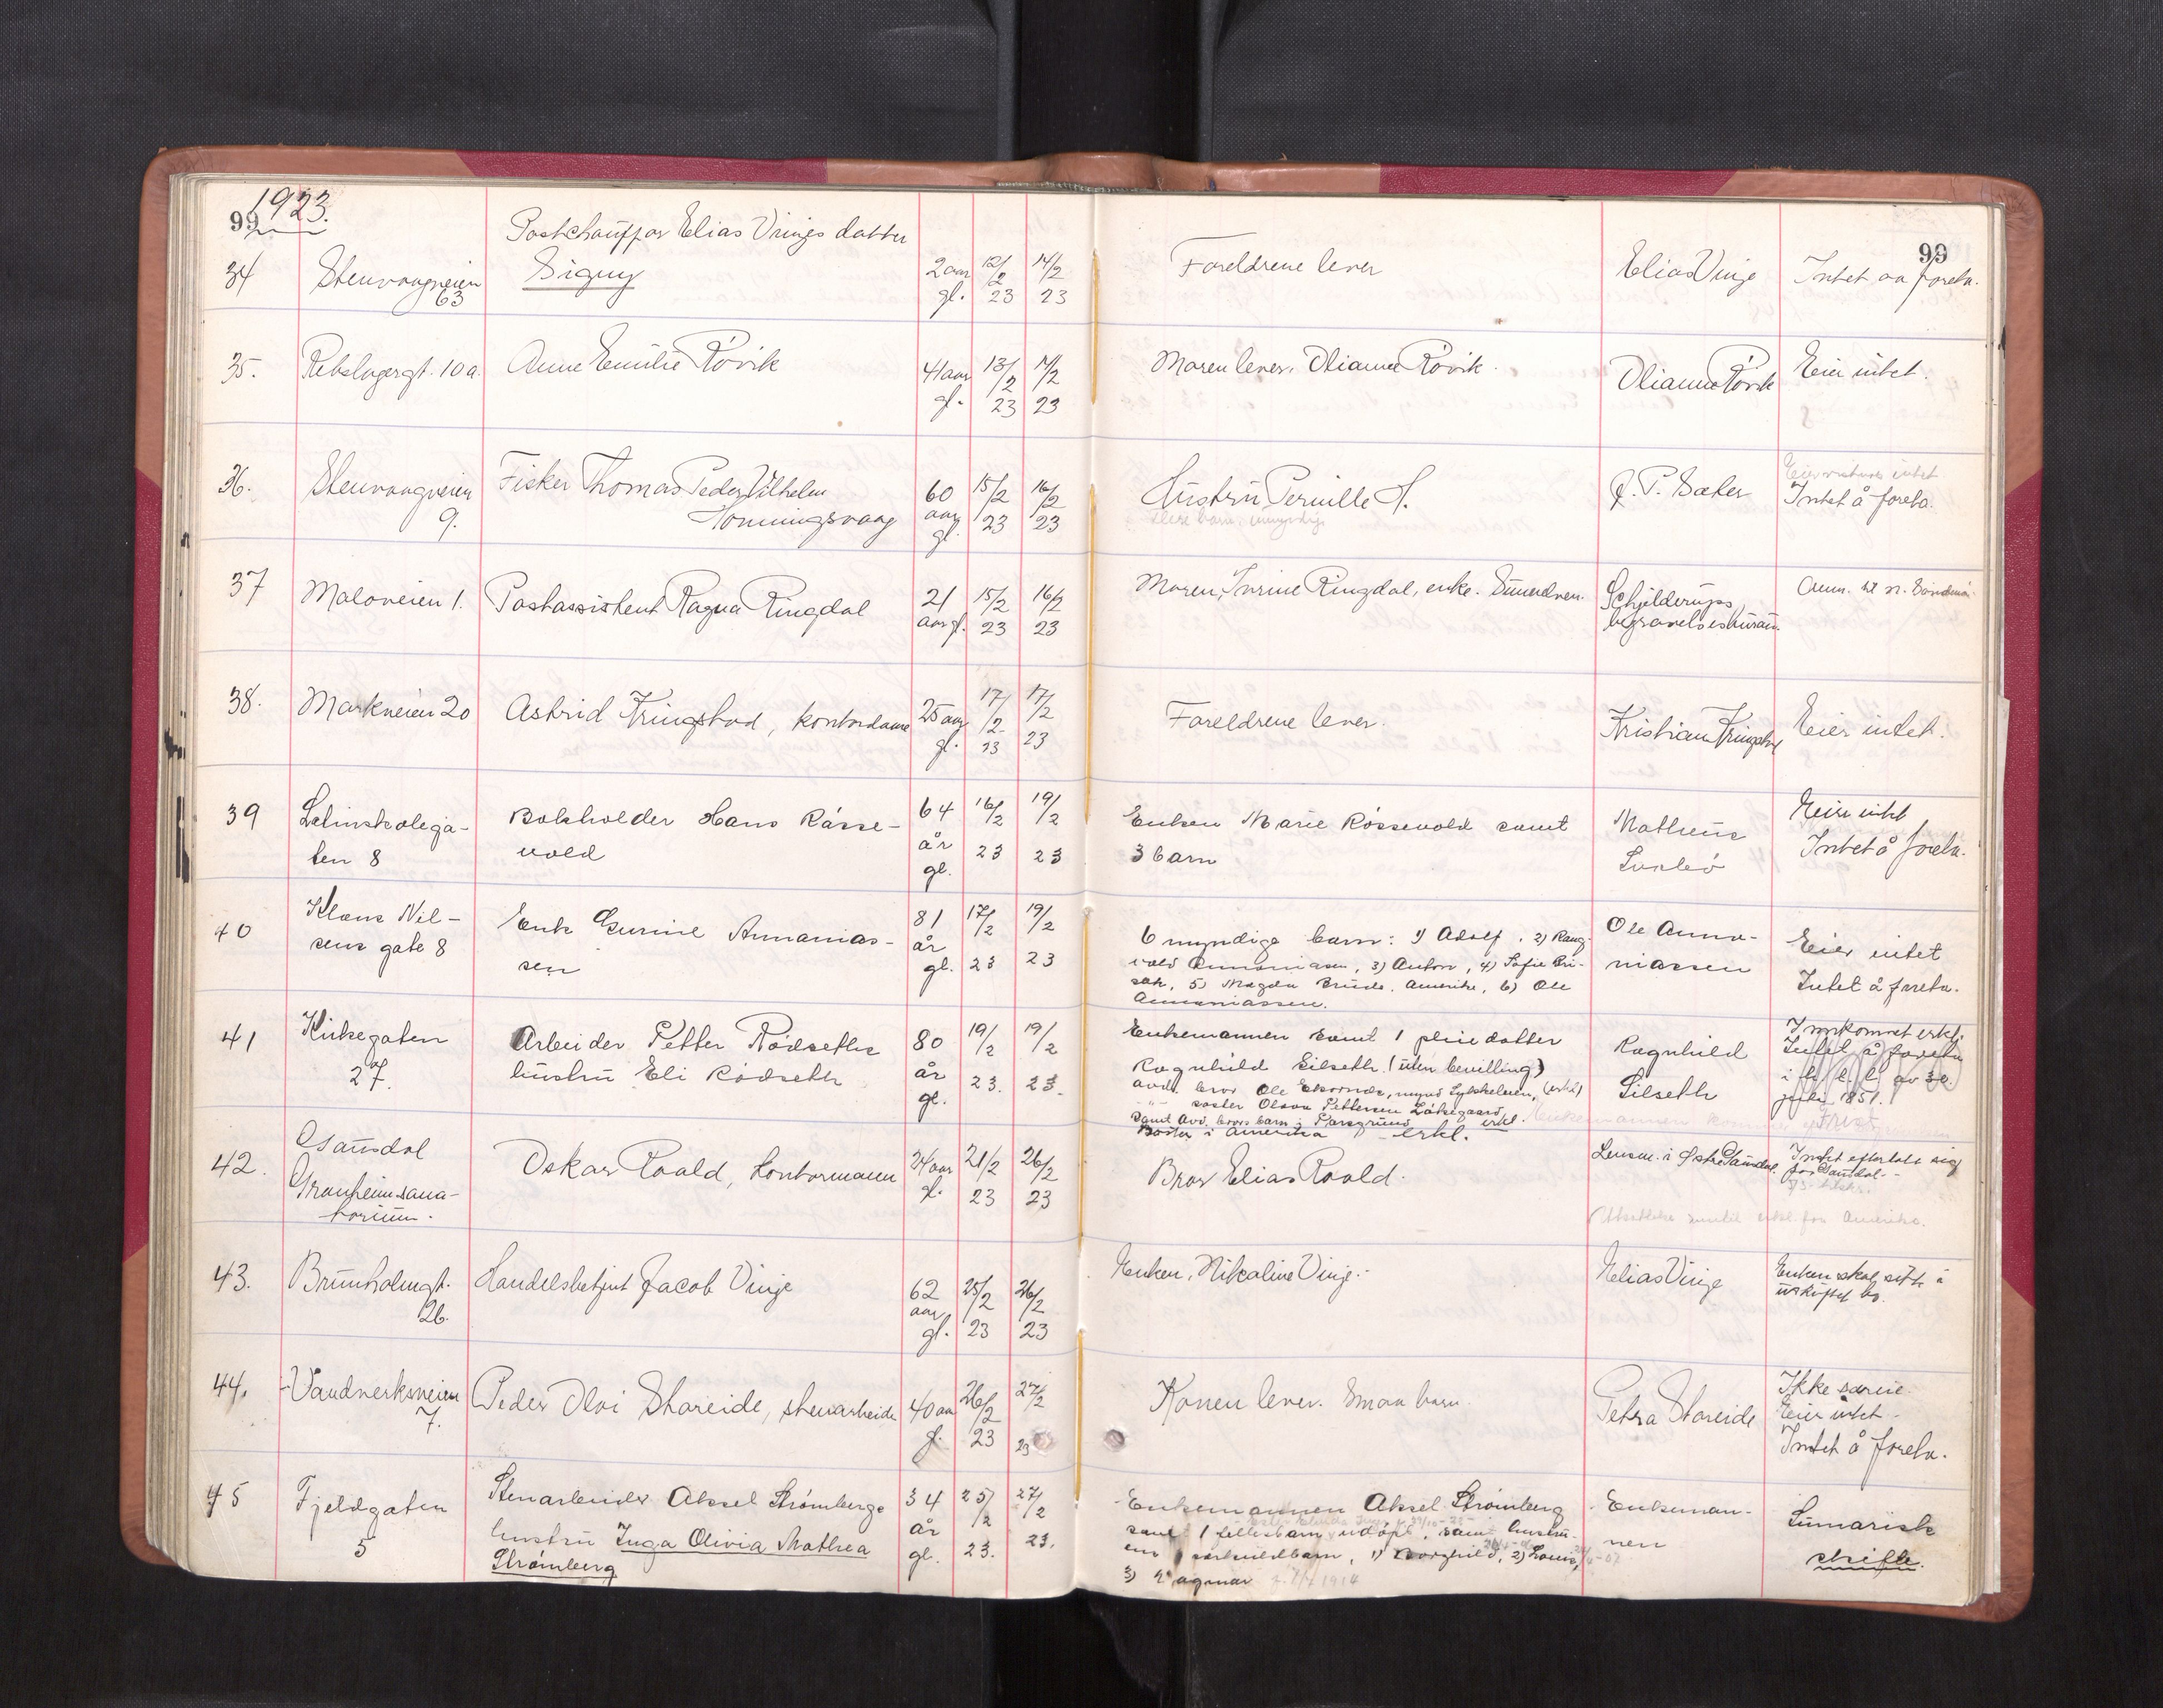 1923.
99
99
Postchauffør Elias Vinjes datter
34 Stenvaagveien 63 Signy 2 aar gl. 12/2 23 14/2 23 Foreldrene lever Elias Vinje Intet aa foreta.
35. Rebslagergt. 10a. Anne Emilie Rövik 41 aar gl. 13/2 23 14/2 23 Moren lever, Oliane Rövik. Oliane Rövik Eier intet.
36. Stenvaagveien 9. Fisker Thomas Peder Vilhelm Honningsvaag 60 aar gl. 15/2 23 16/2 23 Hustru Pernille H. J. P. Sæter
Intet å foreta.
37 Moloveien 1. Postassistent Ragna Ringdal 21 aar gl. 15/2 23 16/2 23 Moren, Inrine Ringdal, enke. Sunnelven. Schjelderups begravelsesbureau. Anm. til n. Søndmør
38. Markveien 20 Astrid Kringstad, kontordame 25 aar gl. 17/2 23 17/2 23 Foreldrene lever. Kristian Kringstad Eier intet.
39 Latinskolega-
ten 8 Bokholder Hans Rösse-
vold 64 år gl. 16/2 23 19/2 23 Enken Marie Rössevold samt
3 barn Matheus
Eier intet
Intet å foreta.
40 Klaus Nil-
sens gate 8 Enke Gurine Annanias-
sen 81 år gl. 17/2 23 19/2 23 6 myndige barn: 1) Adolf, 2) Rang-
vald Annaniasen, 3) Anton, 4) Sofie
5) Magda Amerika, 6) Ole
Annaniassen. Ole Anna-
niassen Eier intet
Intet å foreta.
41 Kirkegaten
27. Arbeider Petter Rödseths
hustru Eli Rödseth 80 år gl. 19/2 23. 19/2 23. Enkemannen samt 1 pleiedatter
Ragnhild Silseth. (uten bevilling)
avd. bror Ole
søster Olava Pettersen
samt avd. brors barn i
Søster i Amerika erkl.
Ragnhild
Silseth Innkommet erkl.
Intet å foreta
i h. t. l. av 30.
juli 1851.
42. Gausdal
Granheim sana-
torium. Oskar Roald, kontormann 24 aar gl. 21/2 23 26/2 23 Bror Elias Roald. Lensm. i Østre Gausdal. Intet efterlatt sig
for Gausdal.
43. Brunholmgt.
26. Handelsbetjent Jacob Vinje 62 aar gl. 25/2 23 26/2 23 Enken, Nikoline Vinje. Elias Vinje Enken skal sitte i
uskiftet bo.
44. Vandverksveien
7. Peder Olai Shareide, stenarbeider 40 aar gl. 26/2 23 27/2 23 Konen lever. Smaa barn. Petra Shareide Ikke særeie.
Eier intet.
Intet å foreta.
45 Fjeldgaten
5 Stenarbeider Aksel Strömbergs
hustru Inga Olivia Mathea
Strömberg 34 år gl. 25/2 23. 27/2 23. Enkemannen Aksel Strömberg
samt 1 fellesbarn, udöpt, samt hustru-
ens særkuldbarn, 1) Borghild, 2) Louis,
3) Ragnar 1914 Enkeman-
nen Summarisk
skifte.